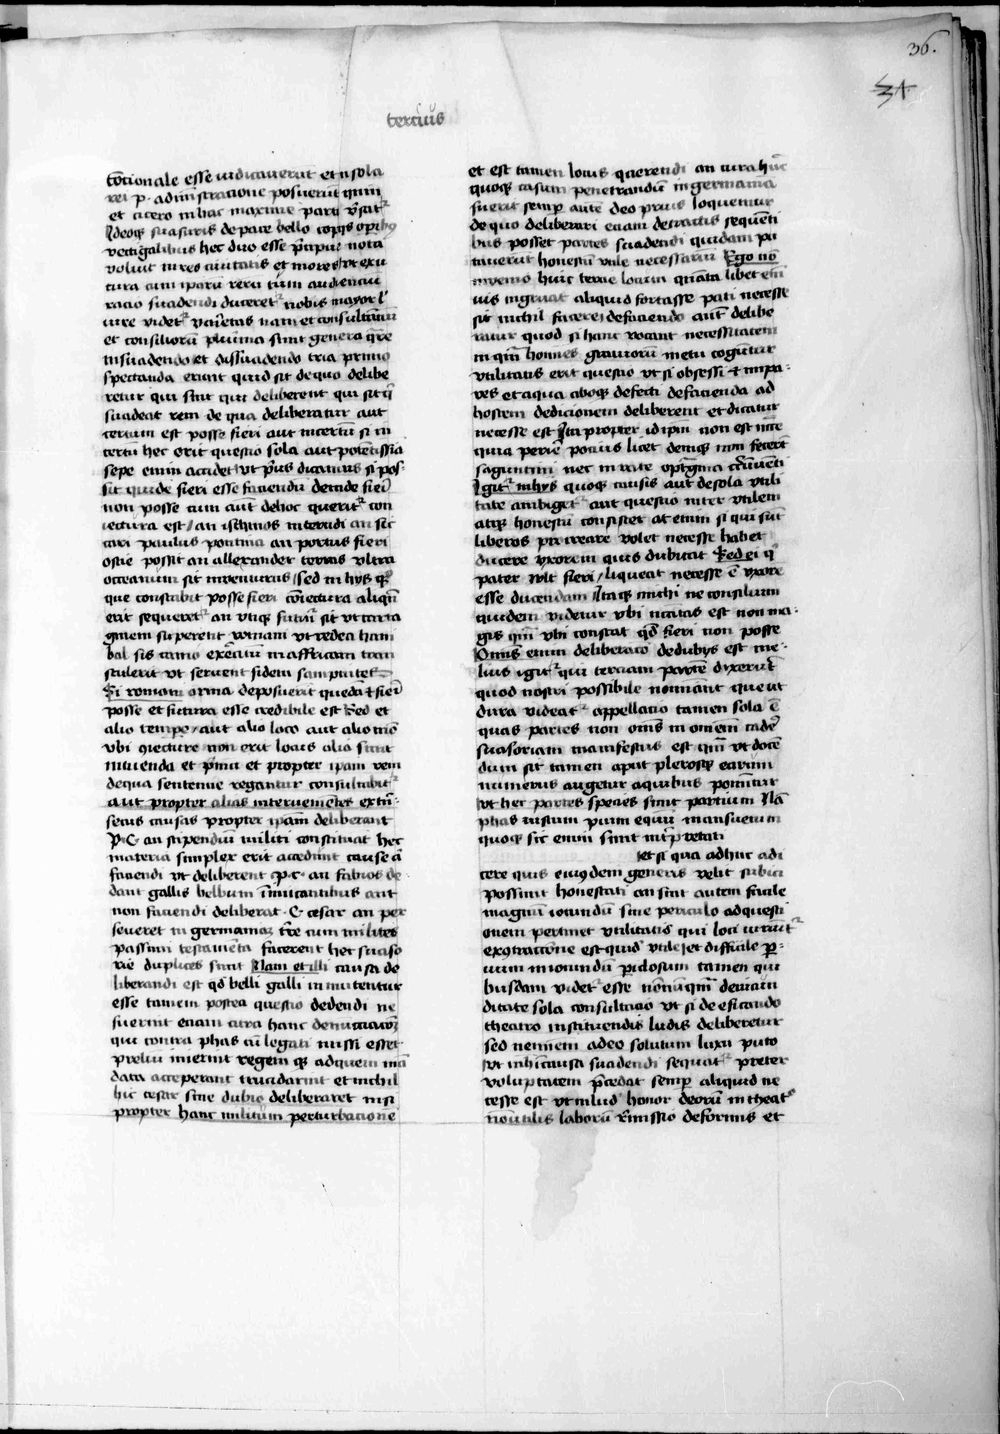 36.
34
tercius
cōcionale esse iudicauerūt et ī sola
rei p. adminīstracione posuerūt quin
et cicero in hac maxime parte v̄satᷣ
Ideoqꝫ suasuris de pace bello copijs opibꝰ
vectigalibus hec duo esse p̄cipue nota
voluit vires ciuitatis et mores vt ex na
tura cum ipsarū rerū tum audienciū
racio suadendi duceretᷣ nobis maior ī
iure videtᷣ varietas nam et consultātiū
et consiliorū plurima sunt genera q̄re
in suadendo et dissuadendo tria primo
spectanda erunt quid sit de quo delibe
retur qui sint qui deliberent qui sit q̄
suadeat rem de qua deliberatur aut
certum est posse fieri aut incertū si in
certū hec erit questio sola aut potētissīa
sepe enim accidet vt p̄us dicamus si pos
sit quidē fieri esse faciendū deinde fierī
non posse cum aut̄ de hoc queritᷣ con
iectura est / an isthmos intercidi an sic
cari palus pontina an portus fieri
ostie possit an allexander terras vltra
occeanum sit inuenturus / sed in hijs q̄
que constabit posse fieri cōiectura aliqn̄
erit sequeretᷣ an vtiqꝫ futurū sit vt carta
ginem superent romani vt redeat hani
bal si scipio exercitū in affricam tran
stulerit vt seruent fidem sampnites
Si romani arma deposuerit quedā et fierī
posse et futura esse credibile est Sed et
alio tempe / aut alio loco aut alio mō
vbi ꝯiecture non erit locus alia sunt
intuenda et p̄mū et propter ipam rem
de qua sentencie rogantur consultabitᷣ
aut propter alias interuenientes extrī-
secus causas propter ipam deliberant
P. C. an stipendiū militi constituat hec
materia simplex erit accedunt cause ā
faciendi vt deliberent p. c. an fabios de
dant gallis bellum īminantibus aut
non faciendi deliberat C. cesar an per
seueret in germaniaꝫ ire cum milites
passim testamēta facerent hee suaso
rie duplices sunt Nam et illi causa de
liberandi est qd̄ belli galli inmittentur
esse tamem postea questio dedendi ne
fuerint eciam citra hanc denūciacōꝫ
qui contra phas cū legati missi essēt
preliū inierint regem qꝫ ad quem mā
data acceperant trucidarint et nichil
hic cesar sine dubio deliberaret nisi
propter hanc militum perturbacionē
et est tamen locus querendi an citra hūc
quoqꝫ casum penetrandū in germaniā
fuerit semp̄ aute deo prius loquemur
de quo deliberari eciam detractis sequēti
bus posset partes suadendi quidam pu
tauerūt honestū vtile necessariū Ego nō
inuenio huic tercie locum quāta libet em̄
uis ingruat aliquid fortasse pati necesse
sit nichil facere de faciendo aut̄ delibe
ratur quod si hanc vocant necessitatem
in qm̄ homines grauiorū metu cogūtur
vtilitatis erit questio vt si obsessi et impa-
res et aqua ciboqꝫ defecti de facienda ad
hostem dedicionem deliberent et dicatur
necesse est Ita propter id ipm̄ non est nc̄ce
quia perire pocius licet deniqꝫ non fecerūt
saguntini nec in rate opitgina circūuēti
Igitᷣ in hijs quoqꝫ causis aut̄ de sola vtili
tate ambigetᷣ aut questio inter vtilem
atqꝫ honestū consistet at enim si qui sūt
liberos procreare volet necesse habet
ducere vxorem quis dubitat Sed ei q̄
pater vult fieri / liqueat necesse ē vxorē
esse ducendam Itaqꝫ michi ne consilium
quidem videtur vbi nc̄citas est non ma-
gis qm̄ vbi constat qd̄ fieri non posse
Omnis enim deliberacō de dubijs est me-
lius igitᷣ qui terciam partē dixerūt
quod nostri possibile nominant que ut
dura videatᷣ appellacio tamen sola ē
quas partes non om̄s in omēm cadere
suasoriam manifestius est qm̄ vt docē
dum sit tamen apud plerosqꝫ earum
numerus augetur a quibus ponuntur
vt hec partes species sunt partium Nā
phas iustum pium equū mansuetum
quoqꝫ sic enim sunt int̄p̄tetati
et si qua adhuc adi
cere quis eiusdem generis velit subici
possunt honestati an sint autem facile
magnū iocundū sine periculo ad questi
onem pertinet vtilitatis qui loci oriūtᷣ
ex ꝯtractione est quid vtile set difficile p̄
uum iniocundū p̄iculosum tamen qui
busdam videtᷣ esse nōnūqm̄ de iocun
ditate sola consultacio vt si de eficando
theatro instituendis ludis deliberetur
sed neminem adeo solutum luxu puto
vt in hi causa suadendi sequatᷣ preter
voluptatem p̄cedat semp̄ aliquid ne
cesse est vt in ludis honor deorū in theatᵒ
nō vtilis laborū remissio deformis et